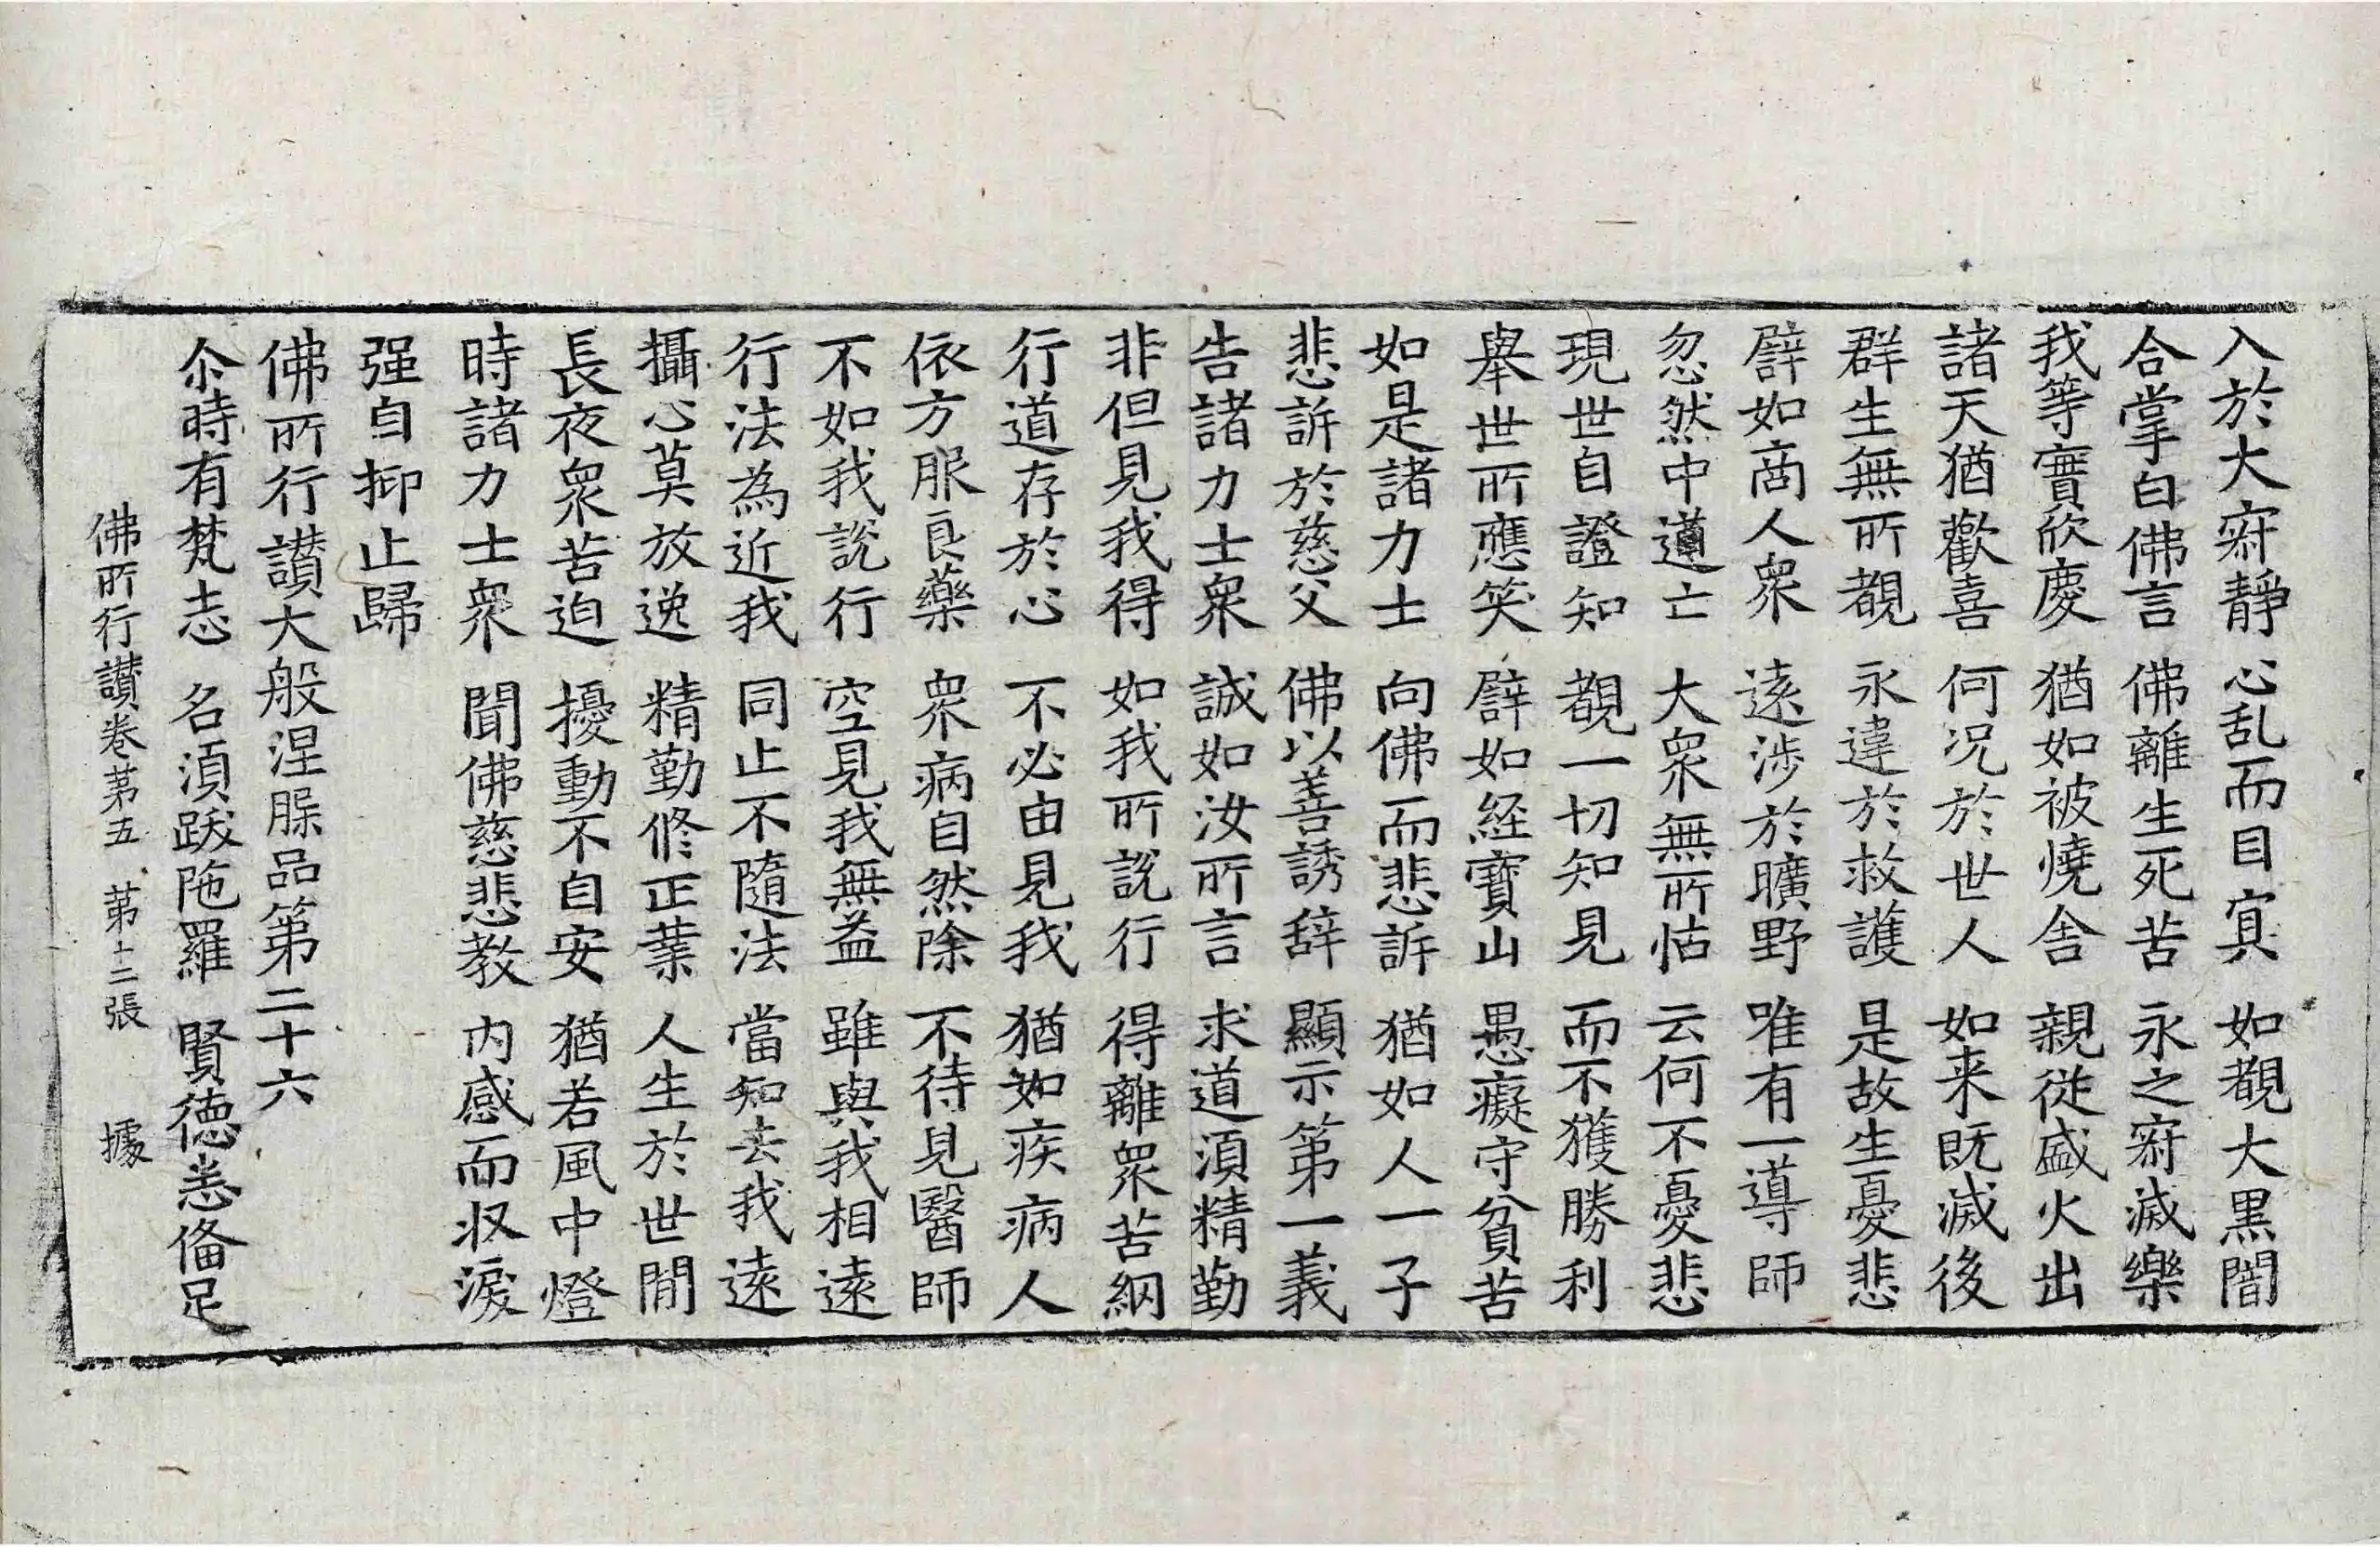 入於大𡧯靜 心乱而目㝠 如覩大黒闇
合掌白佛言 佛離生死苦 永之𡧯滅樂
我等實欣慶 猶如被燒舍 親從盛火出
諸天猶歡喜 何况於世人 如来既滅後
群生無所覩 永違於救護 是故生憂悲
譬如商人衆 遠涉於曠野 唯有一導師
忽然中道亡 大衆無所怙 云何不憂悲
現世自證知 覩一切知見 而不獲勝利
舉世所應笑 譬如経寶山 愚癡守貧苦
如是諸力士 向佛而悲訴 猶如人一子
悲訴於慈父 佛以善誘辞 顯示第一義
告諸力士衆 誠如汝所言 求道須精勤
非但見我得 如我所說行 得離衆苦網
行道存於心 不必由見我 猶如疾病人
依方服良藥 衆病自然除 不待見醫師
不如我說行 空見我無益 雖與我相遠
行法為近我 同止不隨法 當知去我遠
攝心莫放逸 精勤修正業 人生於世間
長夜衆苦迫 擾動不自安 猶若風中燈
時諸力士衆 聞佛慈悲教 内感而收淚
强自抑止歸
佛所行讃大般涅槃品第二十六
尒時有梵志 名須跋陁羅 賢德悉俻足
佛所行讃卷第五 第十二張 據